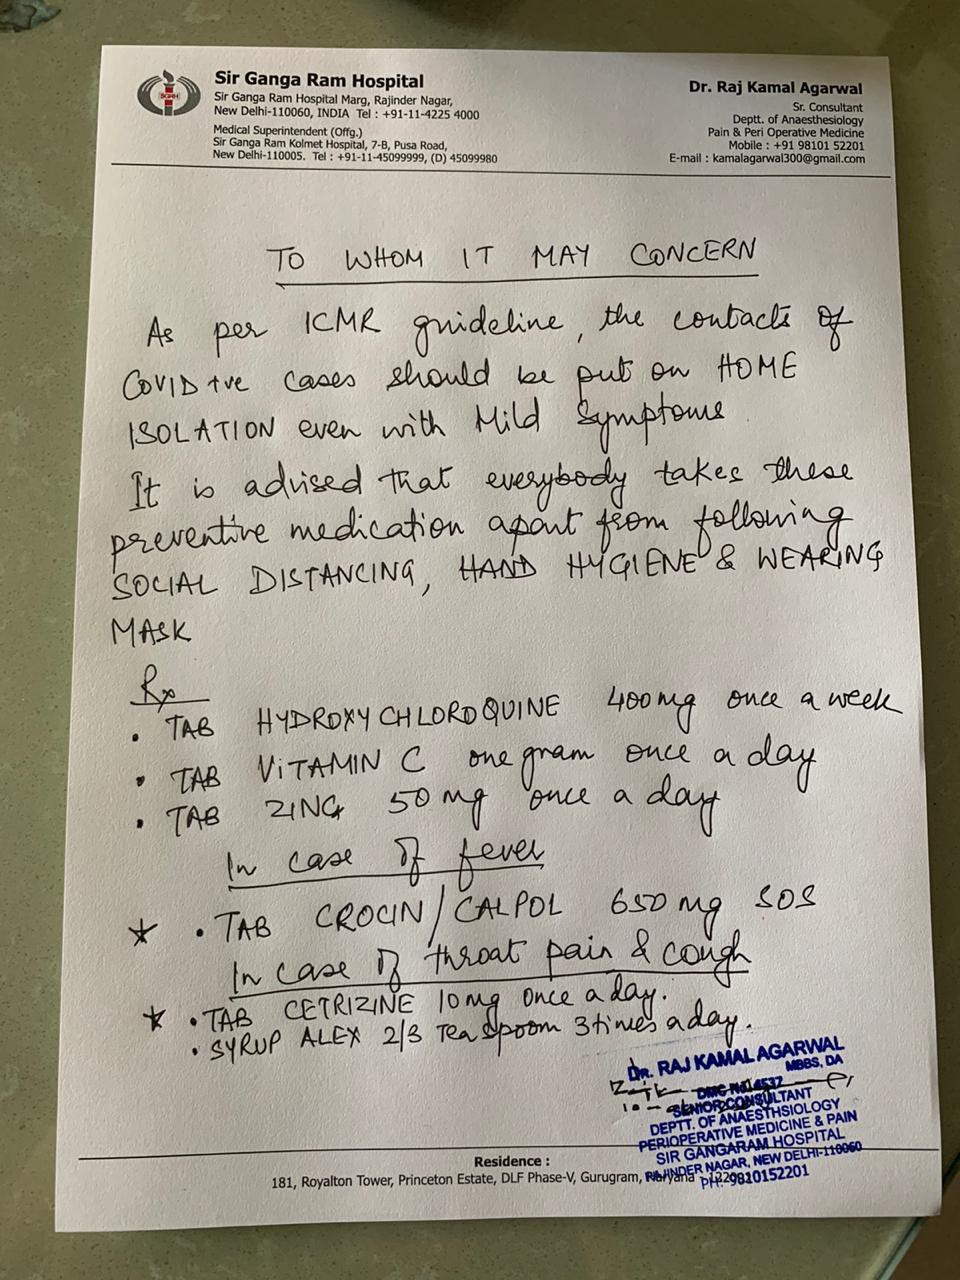 SGRH
Sir Ganga Ram Hospital
Sir Ganga Ram Hospital Marg, Rajinder Nagar,
New Delhi-110060, INDIA Tel : +91-11-4225 4000
Medical Superintendent (Offg.)
Sir Ganga Ram Kolmet Hospital, 7-B, Pusa Road,
New Delhi-110005. Tel : +91-11-45099999, (D) 45099980
Dr. Raj Kamal Agarwal
Sr. Consultant
Deptt. of Anaesthesiology
Pain & Peri Operative Medicine
Mobile : +91 98101 52201
E-mail : kamalagarwal300@gmail.com
TO WHOM IT MAY CONCERN
As per ICMR guideline, the contacts of
COVID +ve cases should be put on HOME
ISOLATION even with Mild Symptoms
It is advised that everybody takes these
preventive medication apart from following
SOCIAL DISTANCING, HAND HYGIENE & WEARING
MASK
Rx
• TAB HYDROXYCHLOROQUINE 400mg once a week
• TAB VITAMIN C one gram once a day
• TAB ZING 50 mg once a day
In case of fever
★ • TAB CROCIN/CALPOL 650 mg SOS
In case of throat pain & cough
★ • TAB CETRIZINE 10mg once a day.
• SYRUP ALEX 2/3 Tea spoom 3 times a day.
DR. RAJ KAMAL AGARWAL
MBBS, DA
DMC No. 4537
SENIOR CONSULTANT
DEPTT. OF ANAESTHSIOLOGY
PERIOPERATIVE MEDICINE & PAIN
SIR GANGARAM HOSPITAL
RAJINDER NAGAR, NEW DELHI-110060
PH. 9810152201
Residence :
181, Royalton Tower, Princeton Estate, DLF Phase-V, Gurugram, Haryana